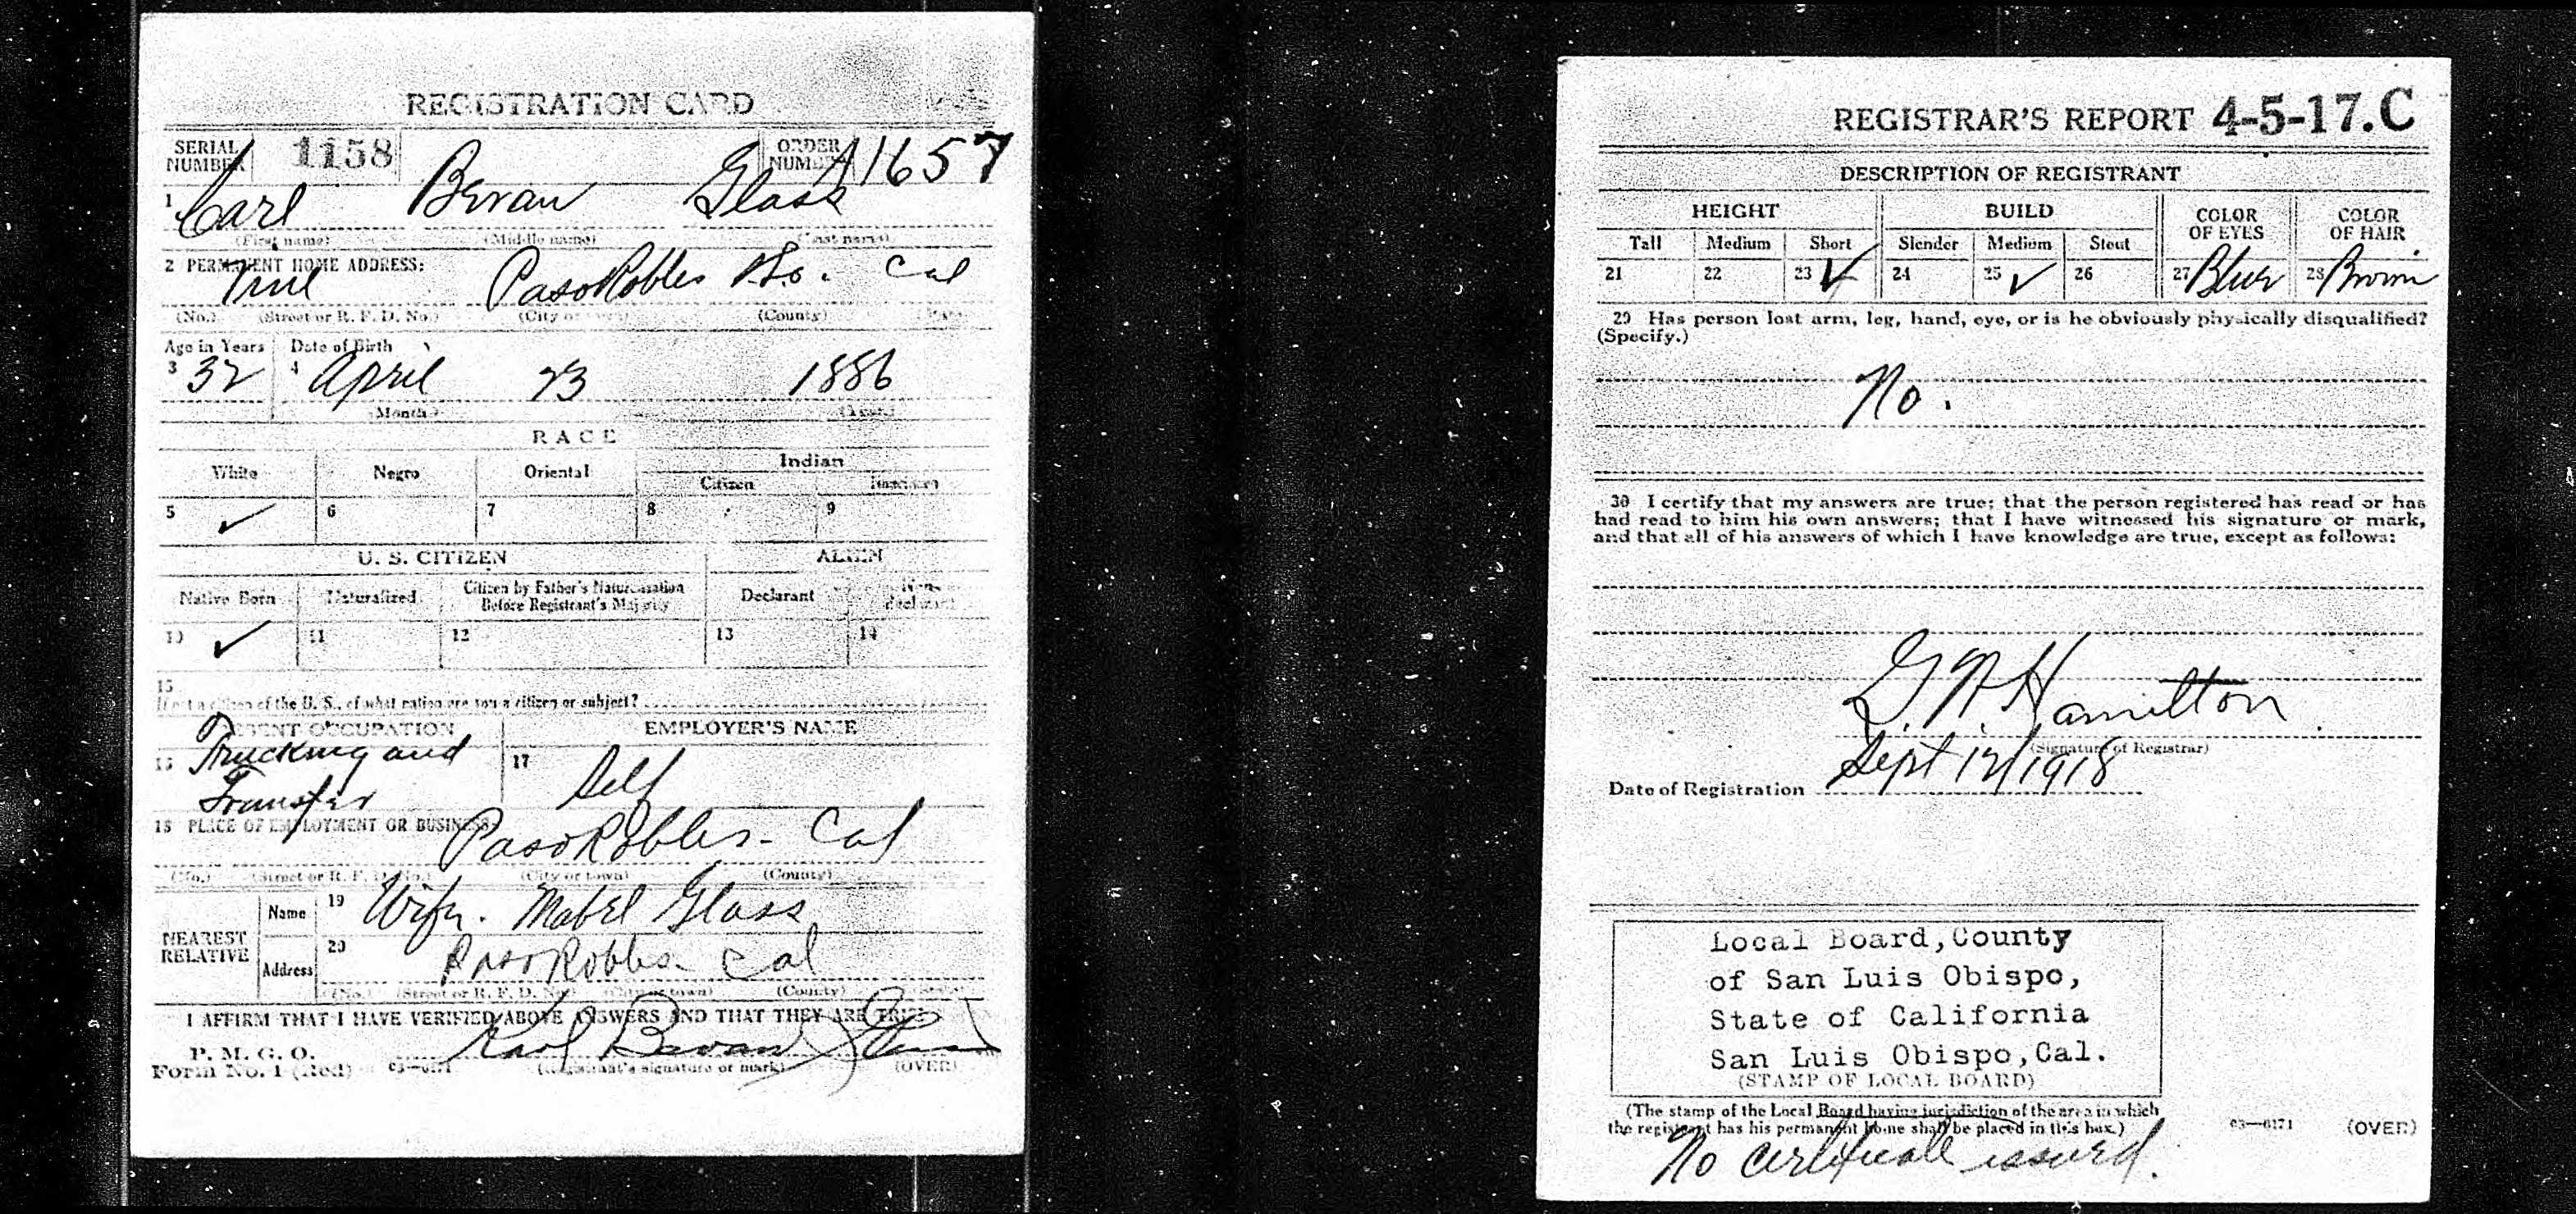 REGISTRATION CARD
SERIAL NUMBER 1158 ORDER NUMBER A1657
1 Carl Bevan Glass
(First name) (Middle name) (Last name)
2 PERMANENT HOME ADDRESS:
Paso Robles S.L.O. Cal
(No.) (Street or R. F. D. No.) (City or town) (County) (State)
Age in Years Date of Birth
3 32 4 April 23 1886
(Month) (Year)
RACE
White Negro Oriental Indian
Citizen Noncitizen
5 ✓ 6 7 8 9
U. S. CITIZEN ALIEN
Native Born Naturalized Citizen by Father's Naturalization Before Registrant's Majority Declarant Non-declarant
10 ✓ 11 12 13 14
15
If not a citizen of the U. S., of what nation are you a citizen or subject?
PRESENT OCCUPATION EMPLOYER'S NAME
16 Trucking and Transfer 17 Self
18 PLACE OF EMPLOYMENT OR BUSINESS:
Paso Robles - Cal
(No.) (Street or R. F. D. No.) (City or town) (County)
NEAREST RELATIVE
Name 19 Wife. Mabel Glass
Address 20 Paso Robles Cal
(No.) (Street or R. F. D. No.) (City or town) (County) (State)
I AFFIRM THAT I HAVE VERIFIED ABOVE ANSWERS AND THAT THEY ARE TRUE
P. M. G. O.
Form No. 1 (Red) 03—6171 Karl Bevan Glass
(Registrant's signature or mark) (OVER)
REGISTRAR'S REPORT 4-5-17.C
DESCRIPTION OF REGISTRANT
HEIGHT BUILD COLOR OF EYES COLOR OF HAIR
Tall Medium Short Slender Medium Stout
21 22 23 ✓ 24 25 ✓ 26 27 Blue 28 Brown
29 Has person lost arm, leg, hand, eye, or is he obviously physically disqualified?
(Specify.)
No.
30 I certify that my answers are true; that the person registered has read or has
had read to him his own answers; that I have witnessed his signature or mark,
and that all of his answers of which I have knowledge are true, except as follows:
Hamilton
(Signature of Registrar)
Date of Registration Sept 12/1918
Local Board, County
of San Luis Obispo,
State of California
San Luis Obispo, Cal.
(STAMP OF LOCAL BOARD)
(The stamp of the Local Board having jurisdiction of the area in which
the registrant has his permanent home shall be placed in this box.)
03—6171 (OVER)
No certificate issued.